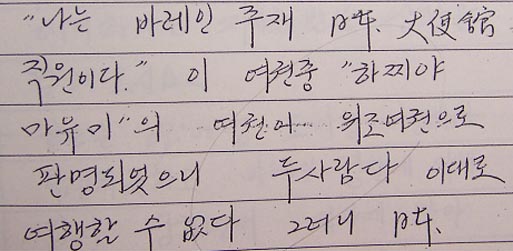 "나는 바레인 주재 日本 大使舘
직원이다." 이 여권중 "하찌야
마유미"의 여권이 위조여권으로
판명되었으니 두사람다 이대로
여행할 수 없다 그러니 日本